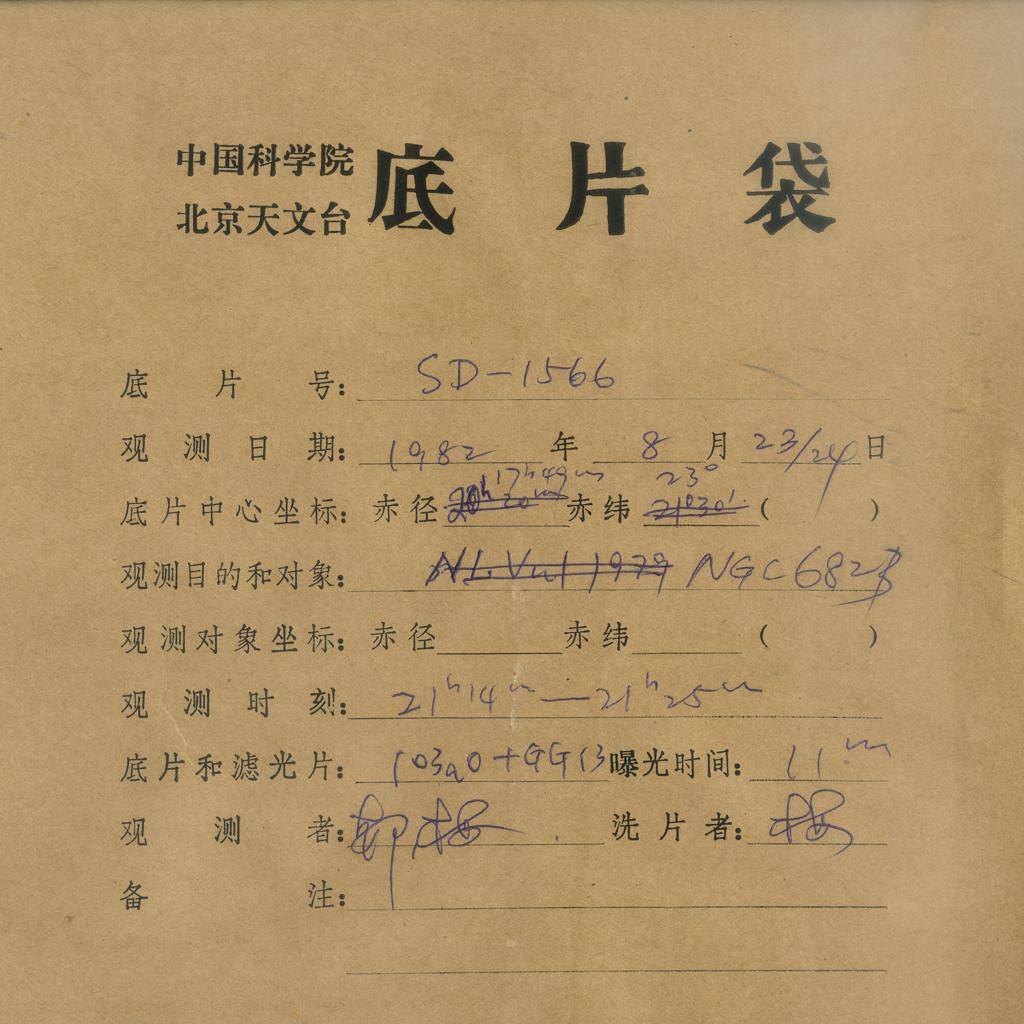 中国科学院
北京天文台
底片袋
底片号: SD-1566
观测日期: 1982 年 8 月 23/24 日
17h49m 23°
底片中心坐标: 赤径 20h20m 赤纬 21°30' ( )
观测目的和对象: NGC 6823
观测对象坐标: 赤径 赤纬 ( )
观测时刻: 21h14m—21h25m
底片和滤光片: 103aO+GG13 曝光时间: 11m
观测者: 郭梅 洗片者: 梅
备注: